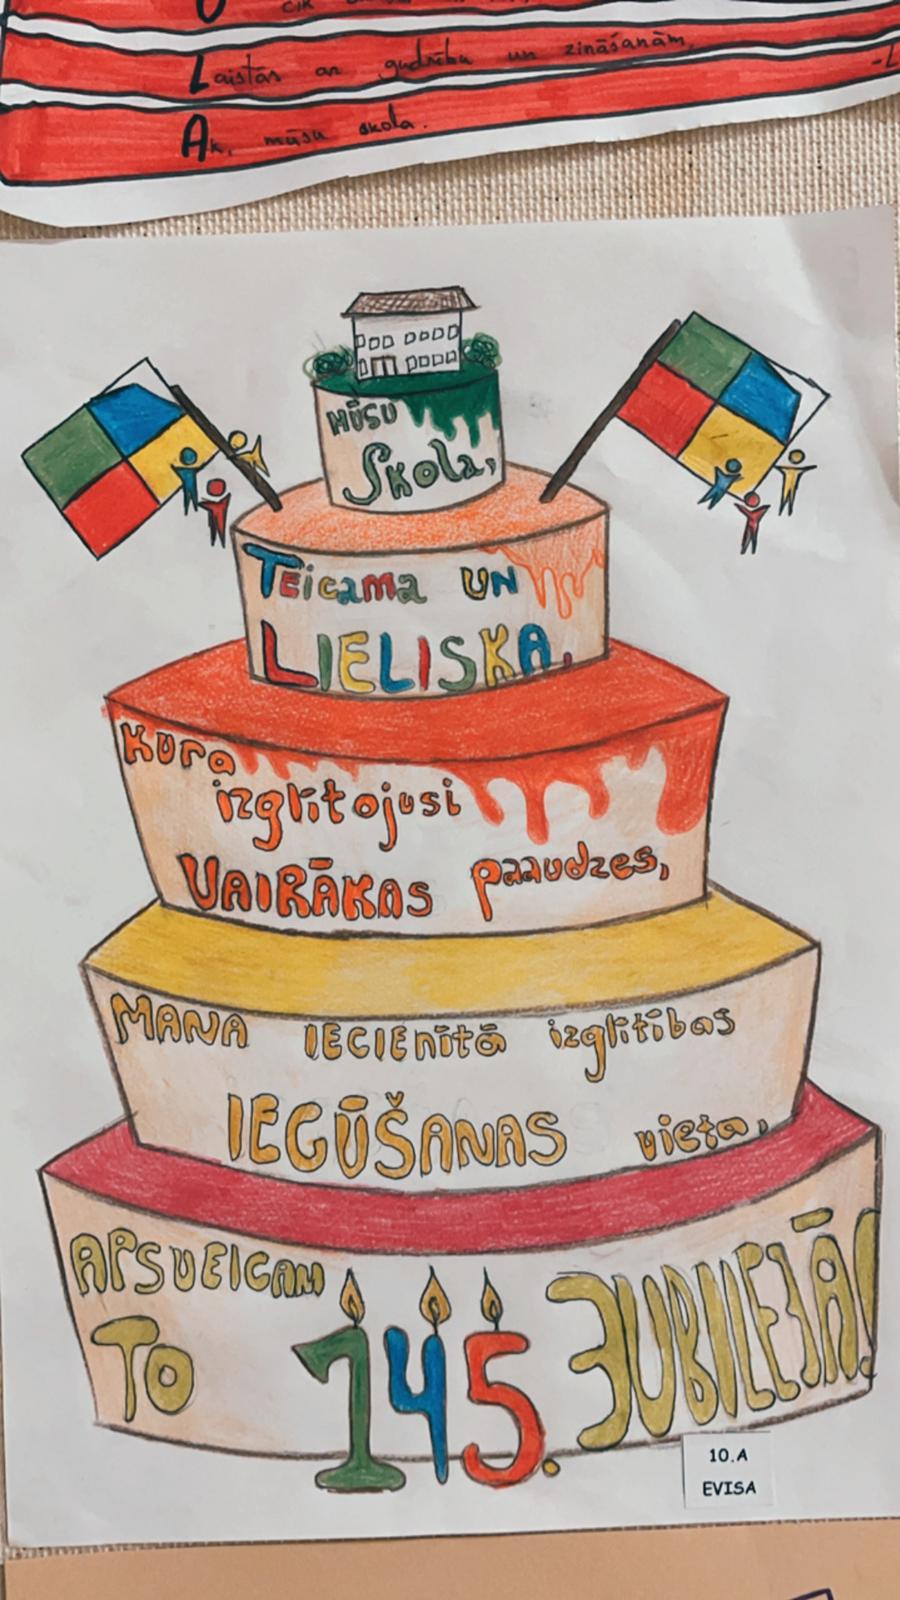 Laistās ar gudrību un zināšanām,
Ak, mūsu skola.
MŪSU
Skola,
TEicama UN
LIELISKA,
Kura
izglītojusi
VAIRĀKAS paaudzes,
MANA IECIEnītā izglītības
IEGŪŠANAS vieta,
APSVEICAM
TO 145. JUBILEJĀ!
10.A
EVISA